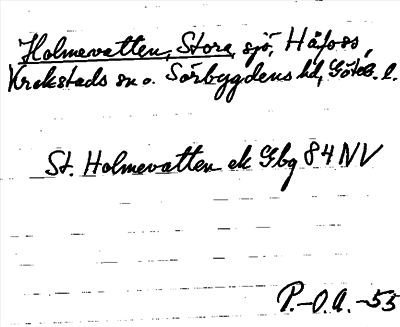 Holmevatten, Stora, sjö, Håfoss,
Krokstads sn o. Sörbygdens hd, Göteb. l.
St. Holmevatten ek Gbg 84 NV
P.-O.A.-55